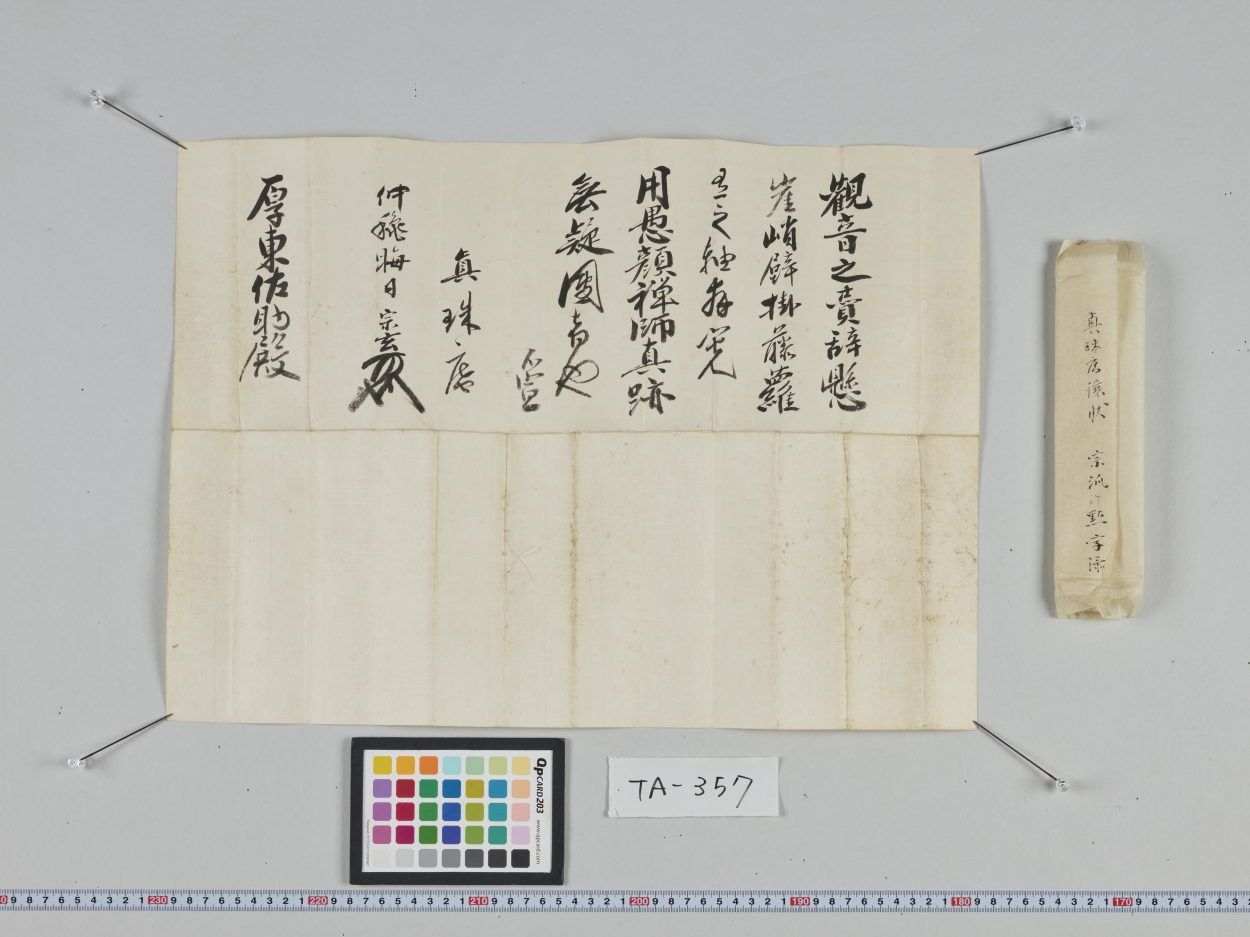 觀音之賛辞懸
崖峭壁掛藤蘿
之軸拜覽
用愚顔禅師真跡
無疑圖者也
不宣
真珠庵
仲穐晦日 宗玄
厚東佐助殿
真珠庵讓状 宗流
TA-357
QPCARD 203
www.qpcard.com
230 9 8 7 6 5 4 3 2 1 220 9 8 7 6 5 4 3 2 1 210 9 8 7 6 5 4 3 2 1 200 9 8 7 6 5 4 3 2 1 190 9 8 7 6 5 4 3 2 1 180 9 8 7 6 5 4 3 2 1 170 9 8 7 6 5 4 3